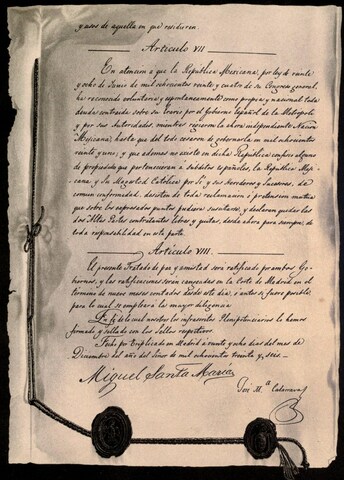 y usos de aquella en que residieren.
Artículo VII
En atencion a que la República Mexicana, por ley de veinte
y ocho de Junio de mil ochocientos veinte y cuatro de su Congreso general,
ha reconocido voluntaria y espontaneamente como propia y nacional toda
deuda contraida sobre su Erario por el Gobierno Español de la Metropoli
y por sus Autoridades, mientras rigieron la ahora independiente Nacion
Mexicana, hasta que del todo cesaron de gobernarla en mil ochocientos
veinte y uno; y que ademas no existe en dicha República confisco alguno
de propiedades que pertenecieran á Subditos españoles, la República Mexi-
cana, y Su Magestad Católica por sí y sus Herederos y Sucesores, de
comun conformidad desisten de toda reclamacion ó pretension mutua
que sobre los expresados puntos pudiera suscitarse, y declaran quedar las
dos Altas Partes contratantes libres y quitas, desde ahora para siempre, de
toda responsabilidad en esta parte.
Artículo VIII.
El presente Tratado de paz y amistad será ratificado por ambos Go-
biernos, y las ratificaciones serán cangeadas en la Corte de Madrid en el
término de nueve meses contados desde este dia, ó antes si fuere posible,
para lo cual se emplea la mayor diligencia.
En fé de lo cual nosotros los infrascritos Plenipotenciarios lo hemos
firmado y sellado con los sellos respectivos.
Fecho por triplicado en Madrid á veinte y ocho dias del mes de
Diciembre del año del Señor de mil ochocientos treinta y seis.
Miguel Santa María
José M.ª Calatrava